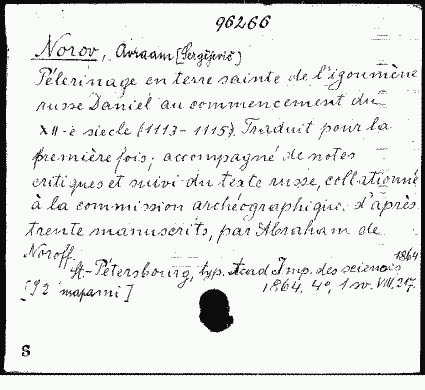 96266
Norov, Avraam [Sergějevič]
Pélerinage en terre sainte de l'igoumène
russe Daniel au commencement du
XII-è siecle (1113-1115). Traduit pour la
première fois; accompagné de notes
critiques et suivi du texte russe, collationné
à la commission archéographique d'après
trente manuscrits, par Abraham de
Noroff.
1864
St.-Pétersbourg, typ. Acad Imp. des sciences
1864. 4°, 1 sv. VIII, 217.
[S 2 mapami]
S